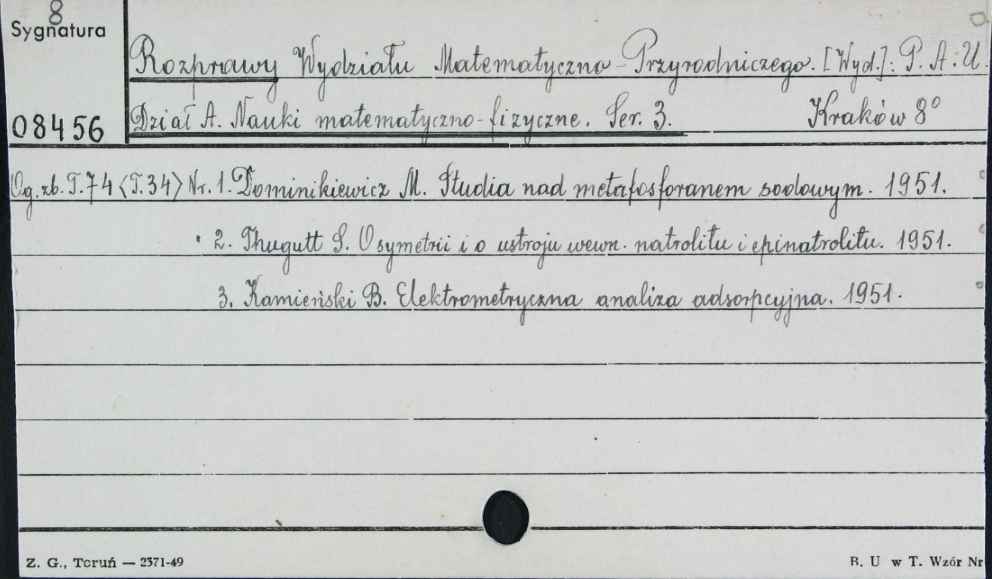 8
Sygnatura
Rozprawy Wydziału Matematyczno-Przyrodniczego. [Wyd.]: P. A. U.
08456
Dział A. Nauki matematyczno-fizyczne. Ser. 3. Kraków 8°
Og. zb. T. 74 <T. 34> Nr. 1. Dominikiewicz M. Studia nad metafosforanem sodowym. 1951.
2. Thugutt S. O symetrii i o ustroju wewn. natrolitu i epinatrolitu. 1951.
3. Kamieński B. Elektrometryczna analiza adsorpcyjna. 1951.
Z. G., Toruń — 2371-49
B. U w T. Wzór Nr